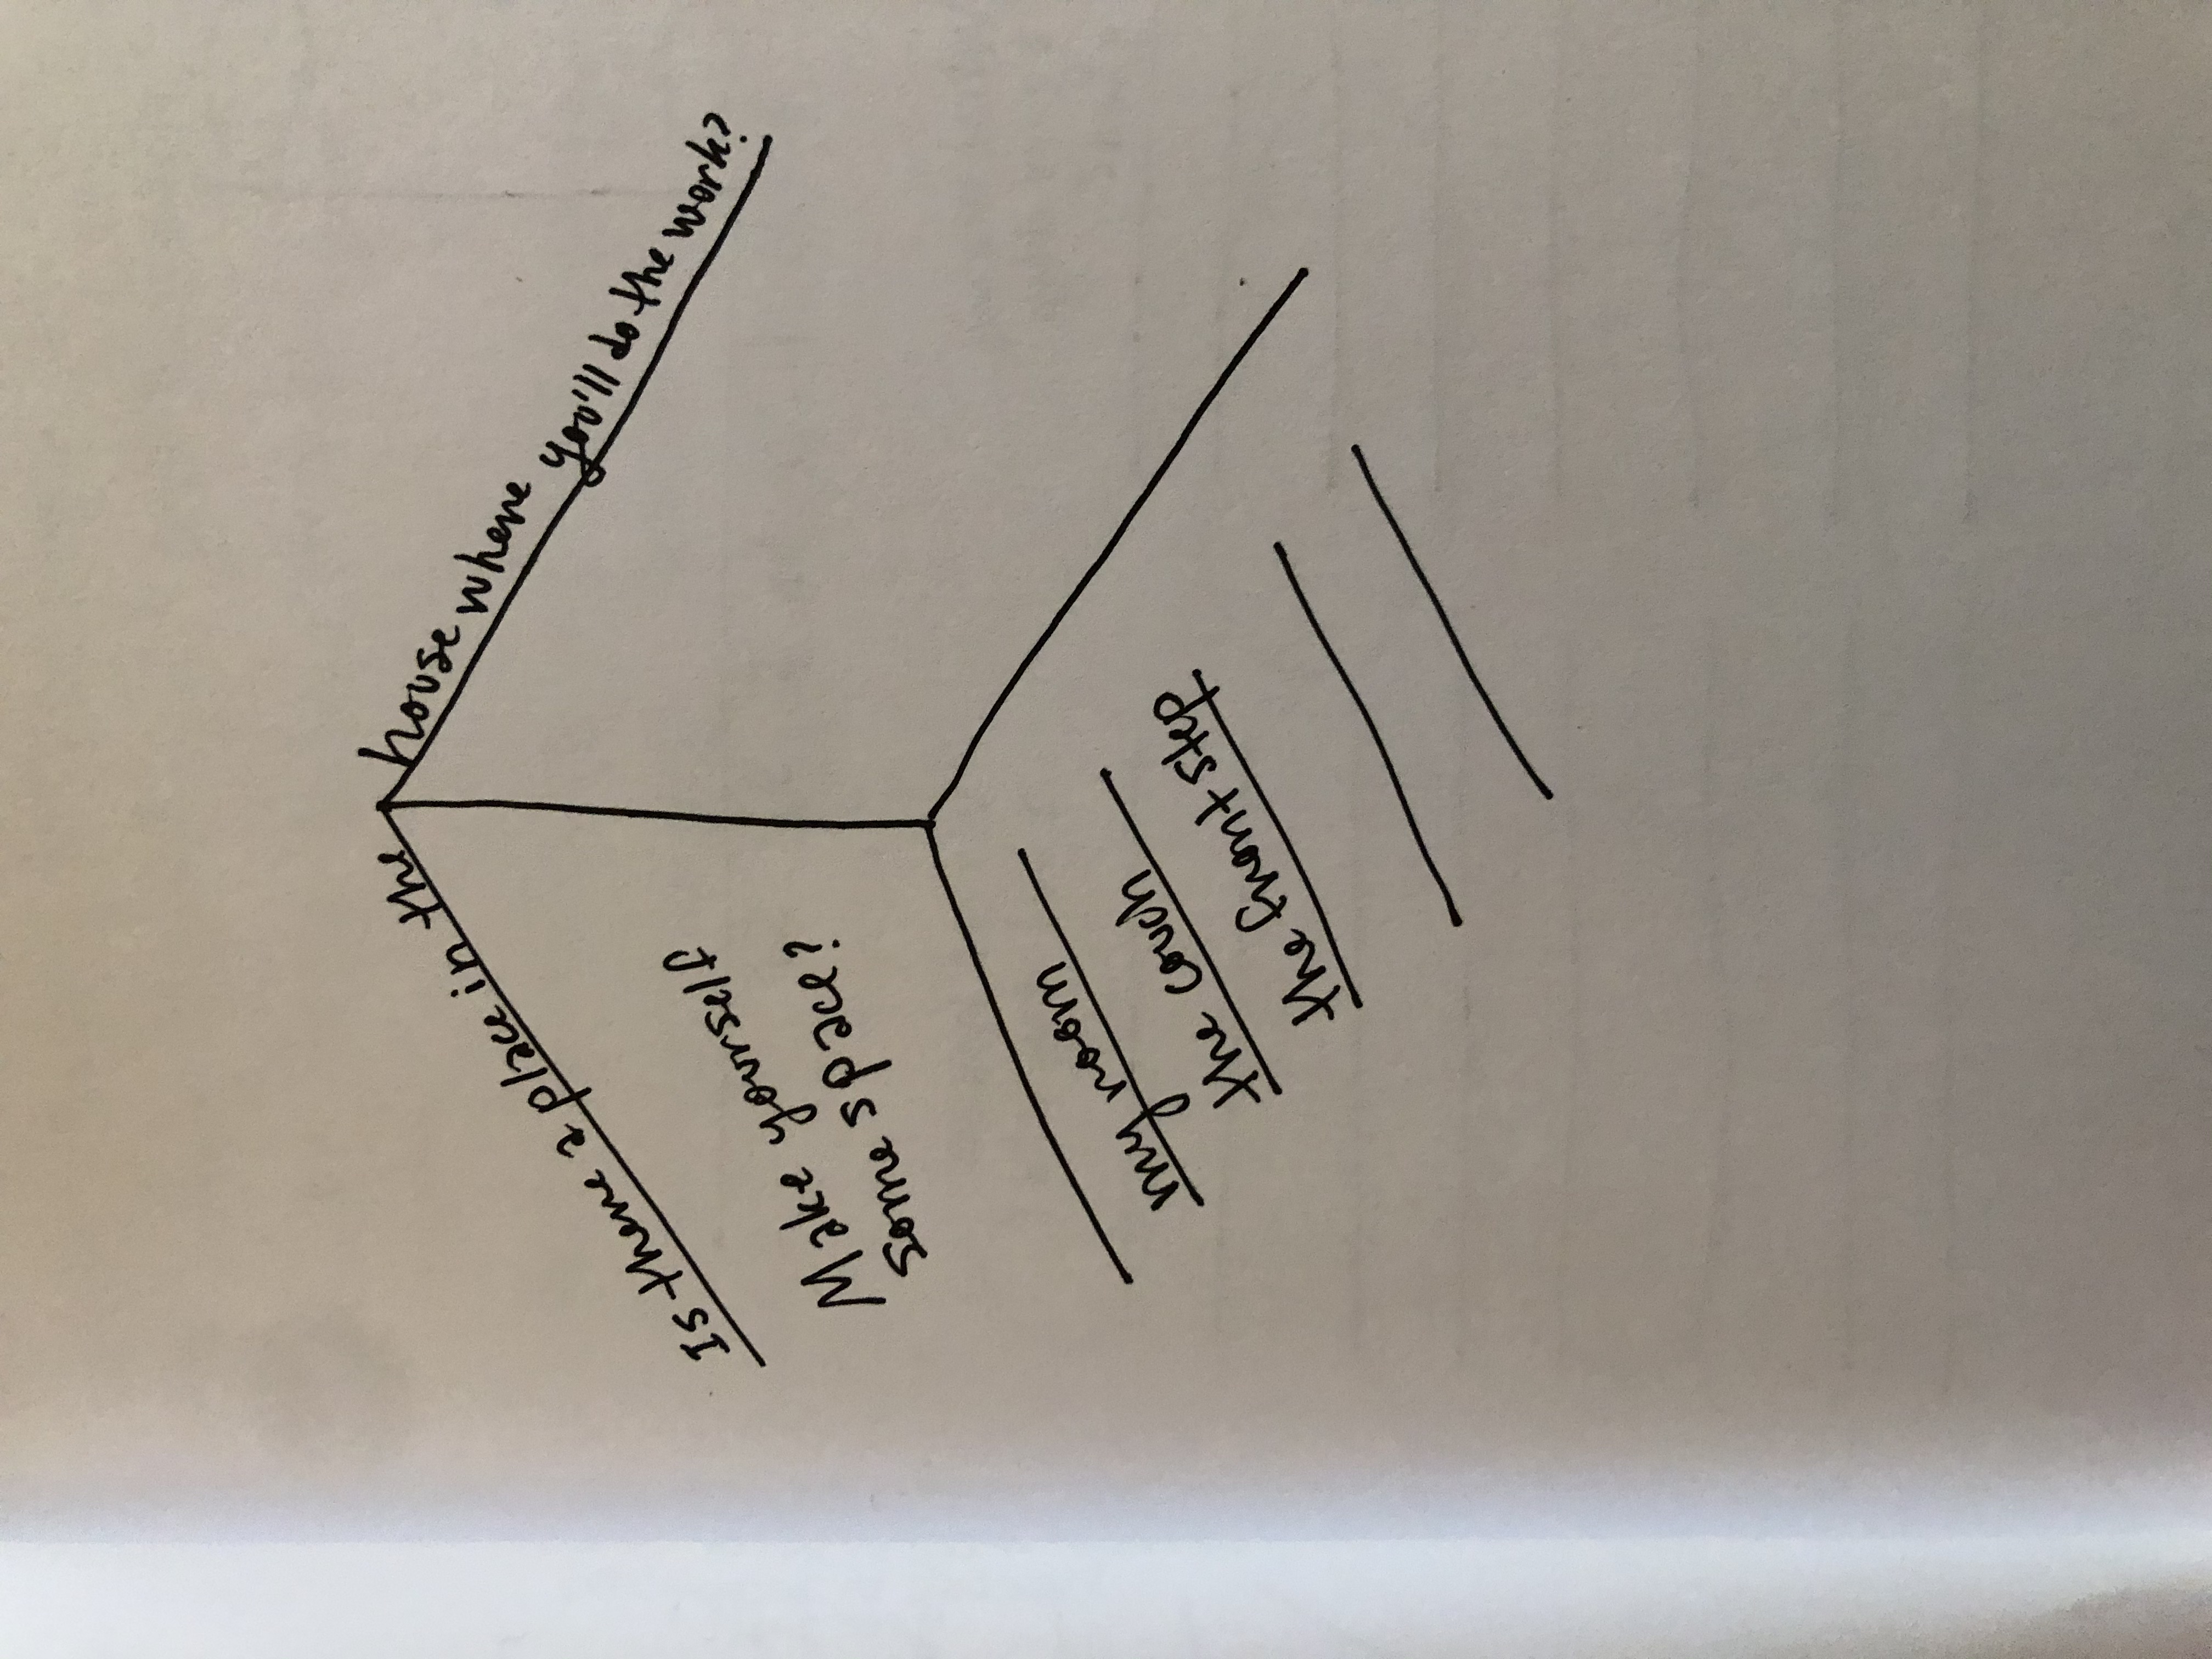 Is there a place in the
house where you'll do the work?
Make yourself
some space?
my room
the couch
the front step